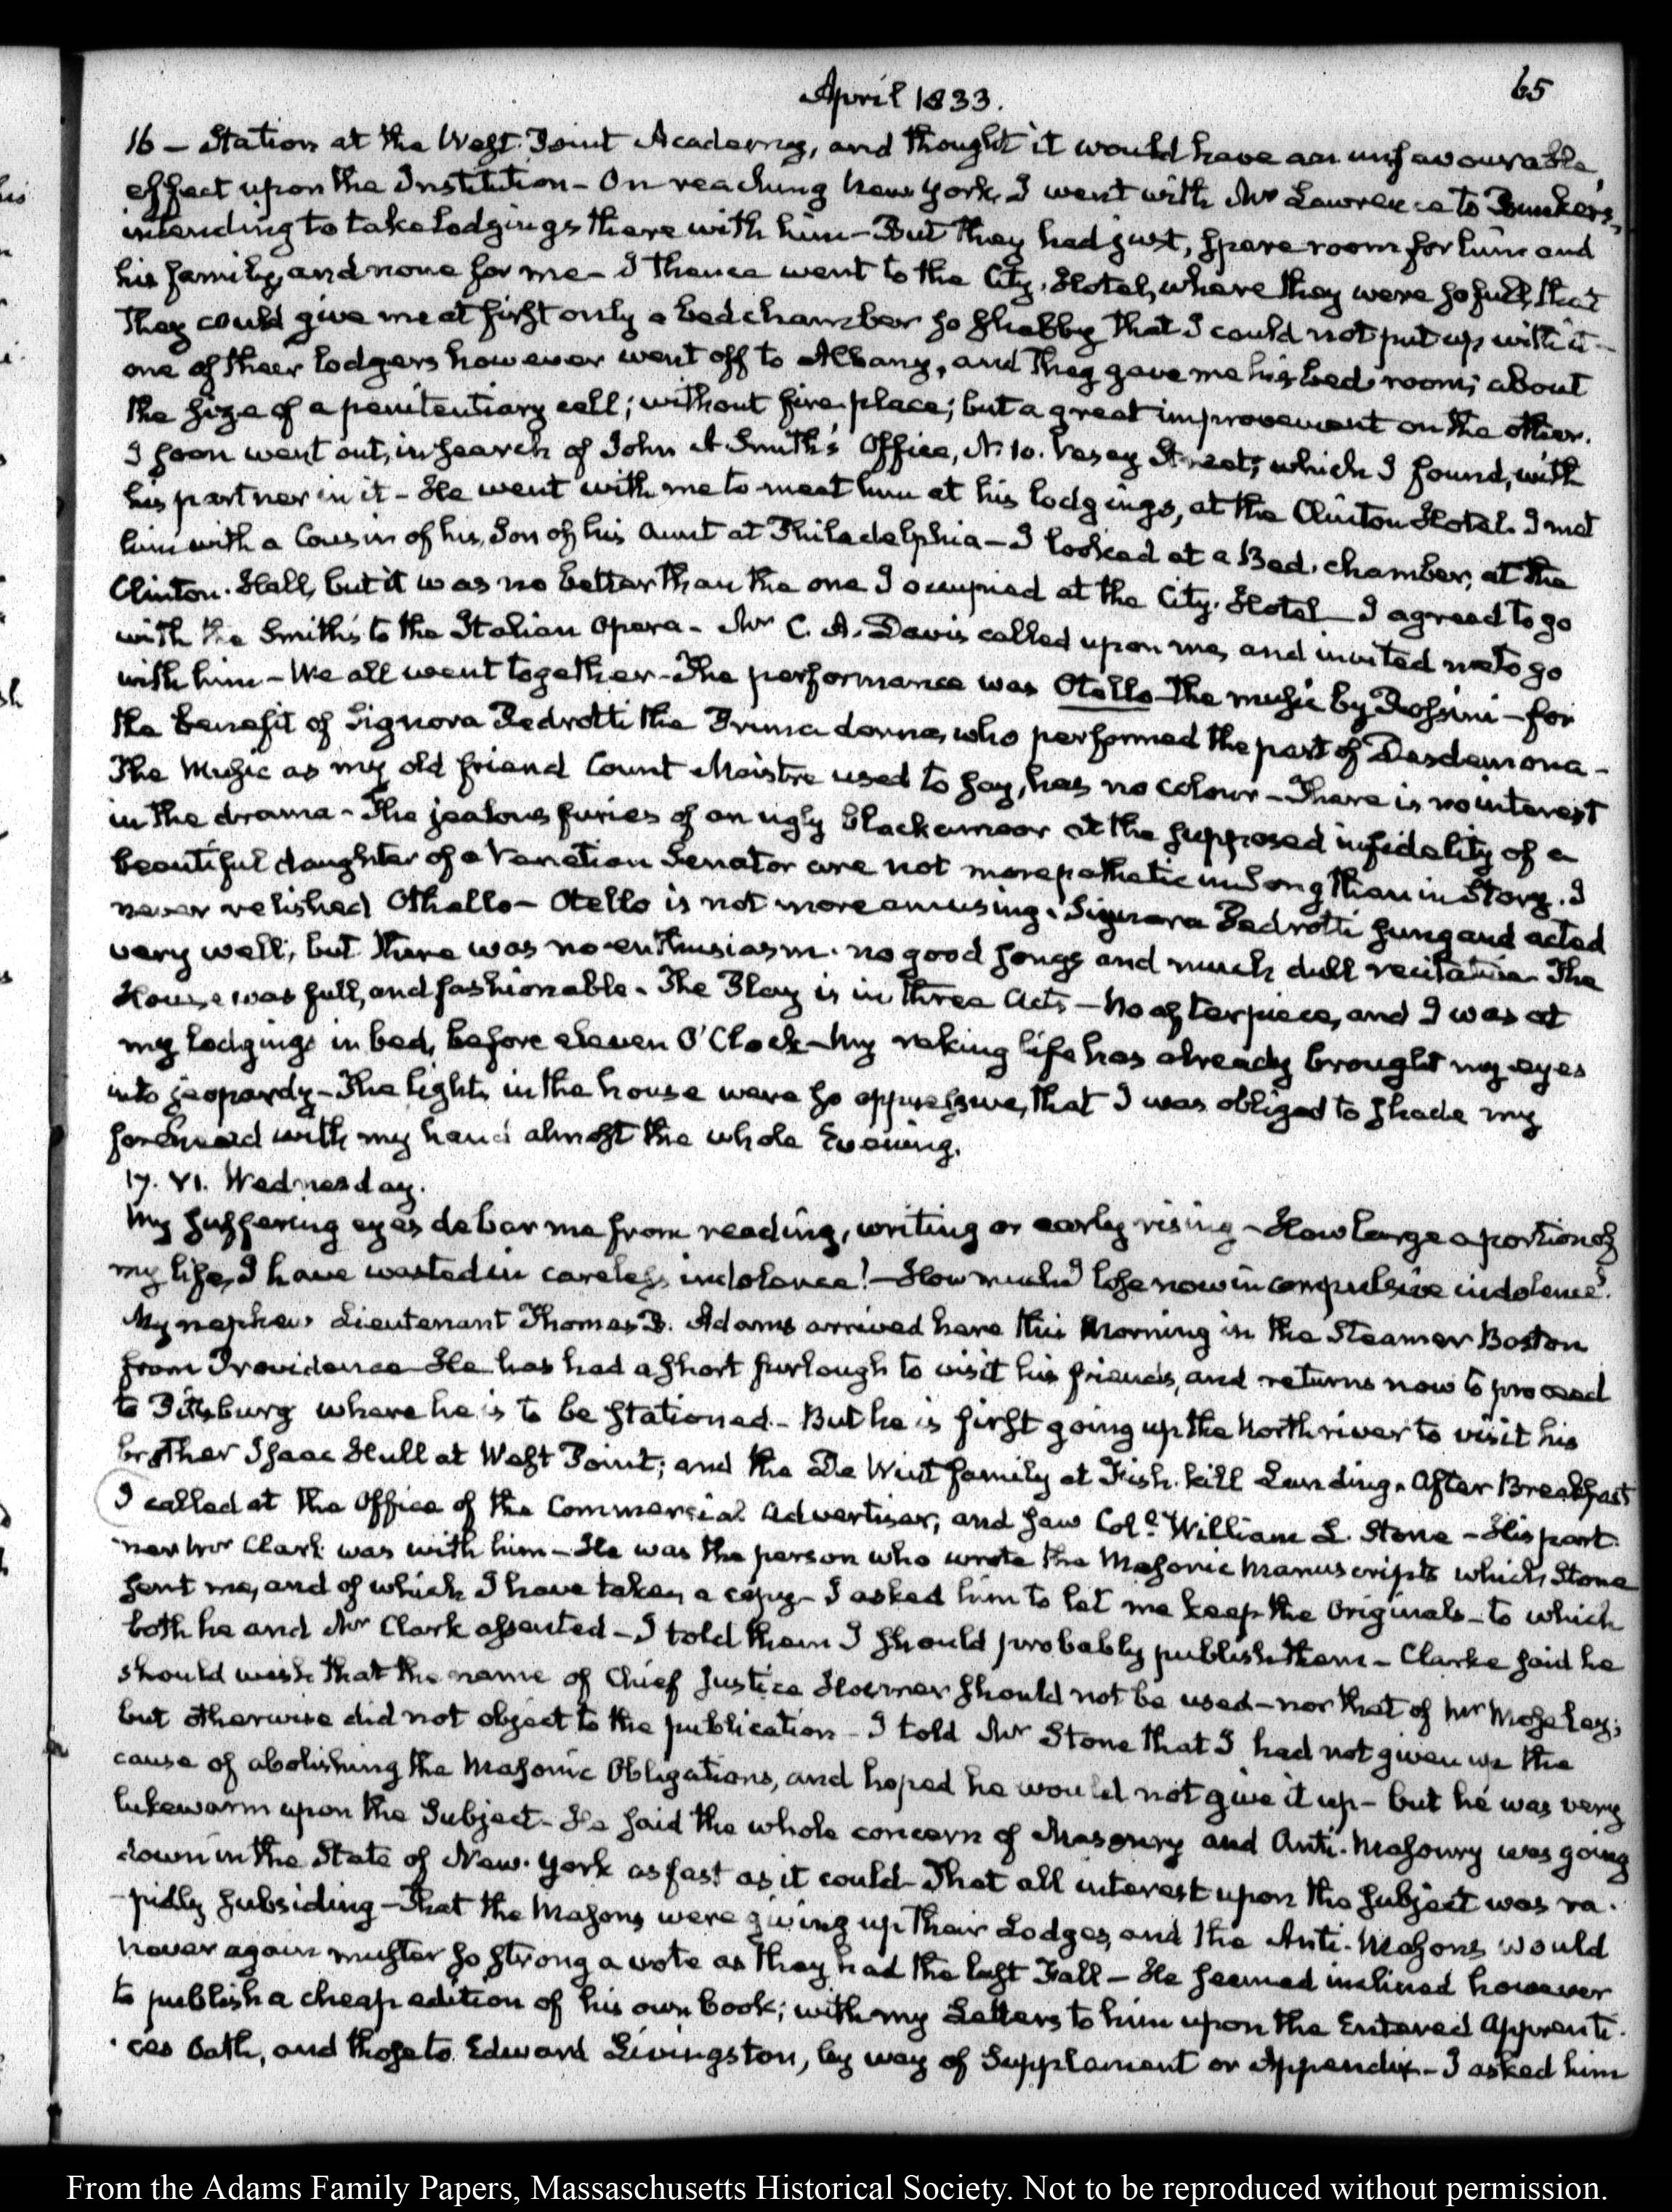 April 1833.
65
16 — Station at the West-Point Academy, and thought it would have an unfavourable
effect upon the Institution — On reaching New York, I went with Mr Lawrence to Bunker's,
intending to take lodgings there with him — But they had just, spare room for him and
his family, and none for me — I thence went to the City-Hotel, where they were so full, that
they could give me at first only a bed chamber so shabby that I could not put up with it —
one of their lodgers however went off to Albany, and they gave me his bed room; about
the size of a penitentiary cell; without fire-place; but a great improvement on the other.
I soon went out, in search of John A Smith's Office, N. 10. Vesey Street, which I found, with
his partner in it — He went with me to meet him at his lodgings, at the Clinton Hotel. I met
him with a Cousin of his, Son of his Aunt at Philadelphia — I looked at a Bed-chamber, at the
Clinton-Hall, but it was no better than the one I occupied at the City-Hotel — I agreed to go
with the Smith's to the Italian Opera — Mr C. A. Davis called upon me, and invited me to go
with him — We all went together — The performance was Otello the music by Rossini — for
the benefit of Signora Pedrotti the Prima donna, who performed the part of Desdemona —
The Music as my old friend Count Maistre used to say, has no colour — There is no interest
in the drama — The jealous furies of an ugly blackamoor at the supposed infidelity of a
beautiful daughter of a Venetian Senator are not more pathetic in Song than in Story. I
never relished Othello — Otello is not more amusing. Signora Pedrotti sung and acted
very well; but there was no enthusiasm. no good songs and much dull recitative. The
House was full, and fashionable. The Play is in three Acts — No afterpiece, and I was at
my lodgings in bed, before eleven O'Clock — My raking life has already brought my eyes
into jeopardy — The lights in the house were so oppressive, that I was obliged to shade my
forehead with my hand almost the whole Evening.
17. VI. Wednesday.
My suffering eyes debar me from reading, writing or early rising — How large a portion of
my life, I have wasted in careless indolence! — How much I lose now in compulsive indolence!
My nephew Lieutenant Thomas B. Adams arrived here this Morning in the Steamer Boston
from Providence — He has had a short furlough to visit his friends, and returns now to proceed
to Pittsburg where he is to be stationed — But he is first going up the North river to visit his
brother Isaac Hull at West Point; and the De Wint family at Fish-kill Landing. After Breakfast
I called at the Office of the Commercial Advertiser, and saw Col.o William L. Stone — His part-
ner Mr Clark was with him — He was the person who wrote the Masonic Manuscripts which Stone
sent me, and of which I have taken a copy — I asked him to let me keep the Originals — to which
both he and Mr Clark assented — I told them I should probably publish them — Clarke said he
should wish that the name of Chief Justice Hosmer should not be used — nor that of Mr Moseley;
but otherwise did not object to the publication — I told Mr Stone that I had not given up the
cause of abolishing the Masonic Obligations, and hoped he would not give it up — but he was very
lukewarm upon the Subject — He said the whole concern of Masonry and Anti-Masonry was going
down in the State of New-York as fast as it could — That all interest upon the subject was ra-
pidly subsiding — That the Masons were giving up their Lodges, and the Anti-Masons would
never again muster so strong a vote as they had the last Fall — He seemed inclined however
to publish a cheap edition of his own book; with my Letters to him upon the Entered Apprenti-
ces Oath, and those to Edward Livingston, by way of Supplement or Appendix — I asked him
From the Adams Family Papers, Massachusetts Historical Society. Not to be reproduced without permission.